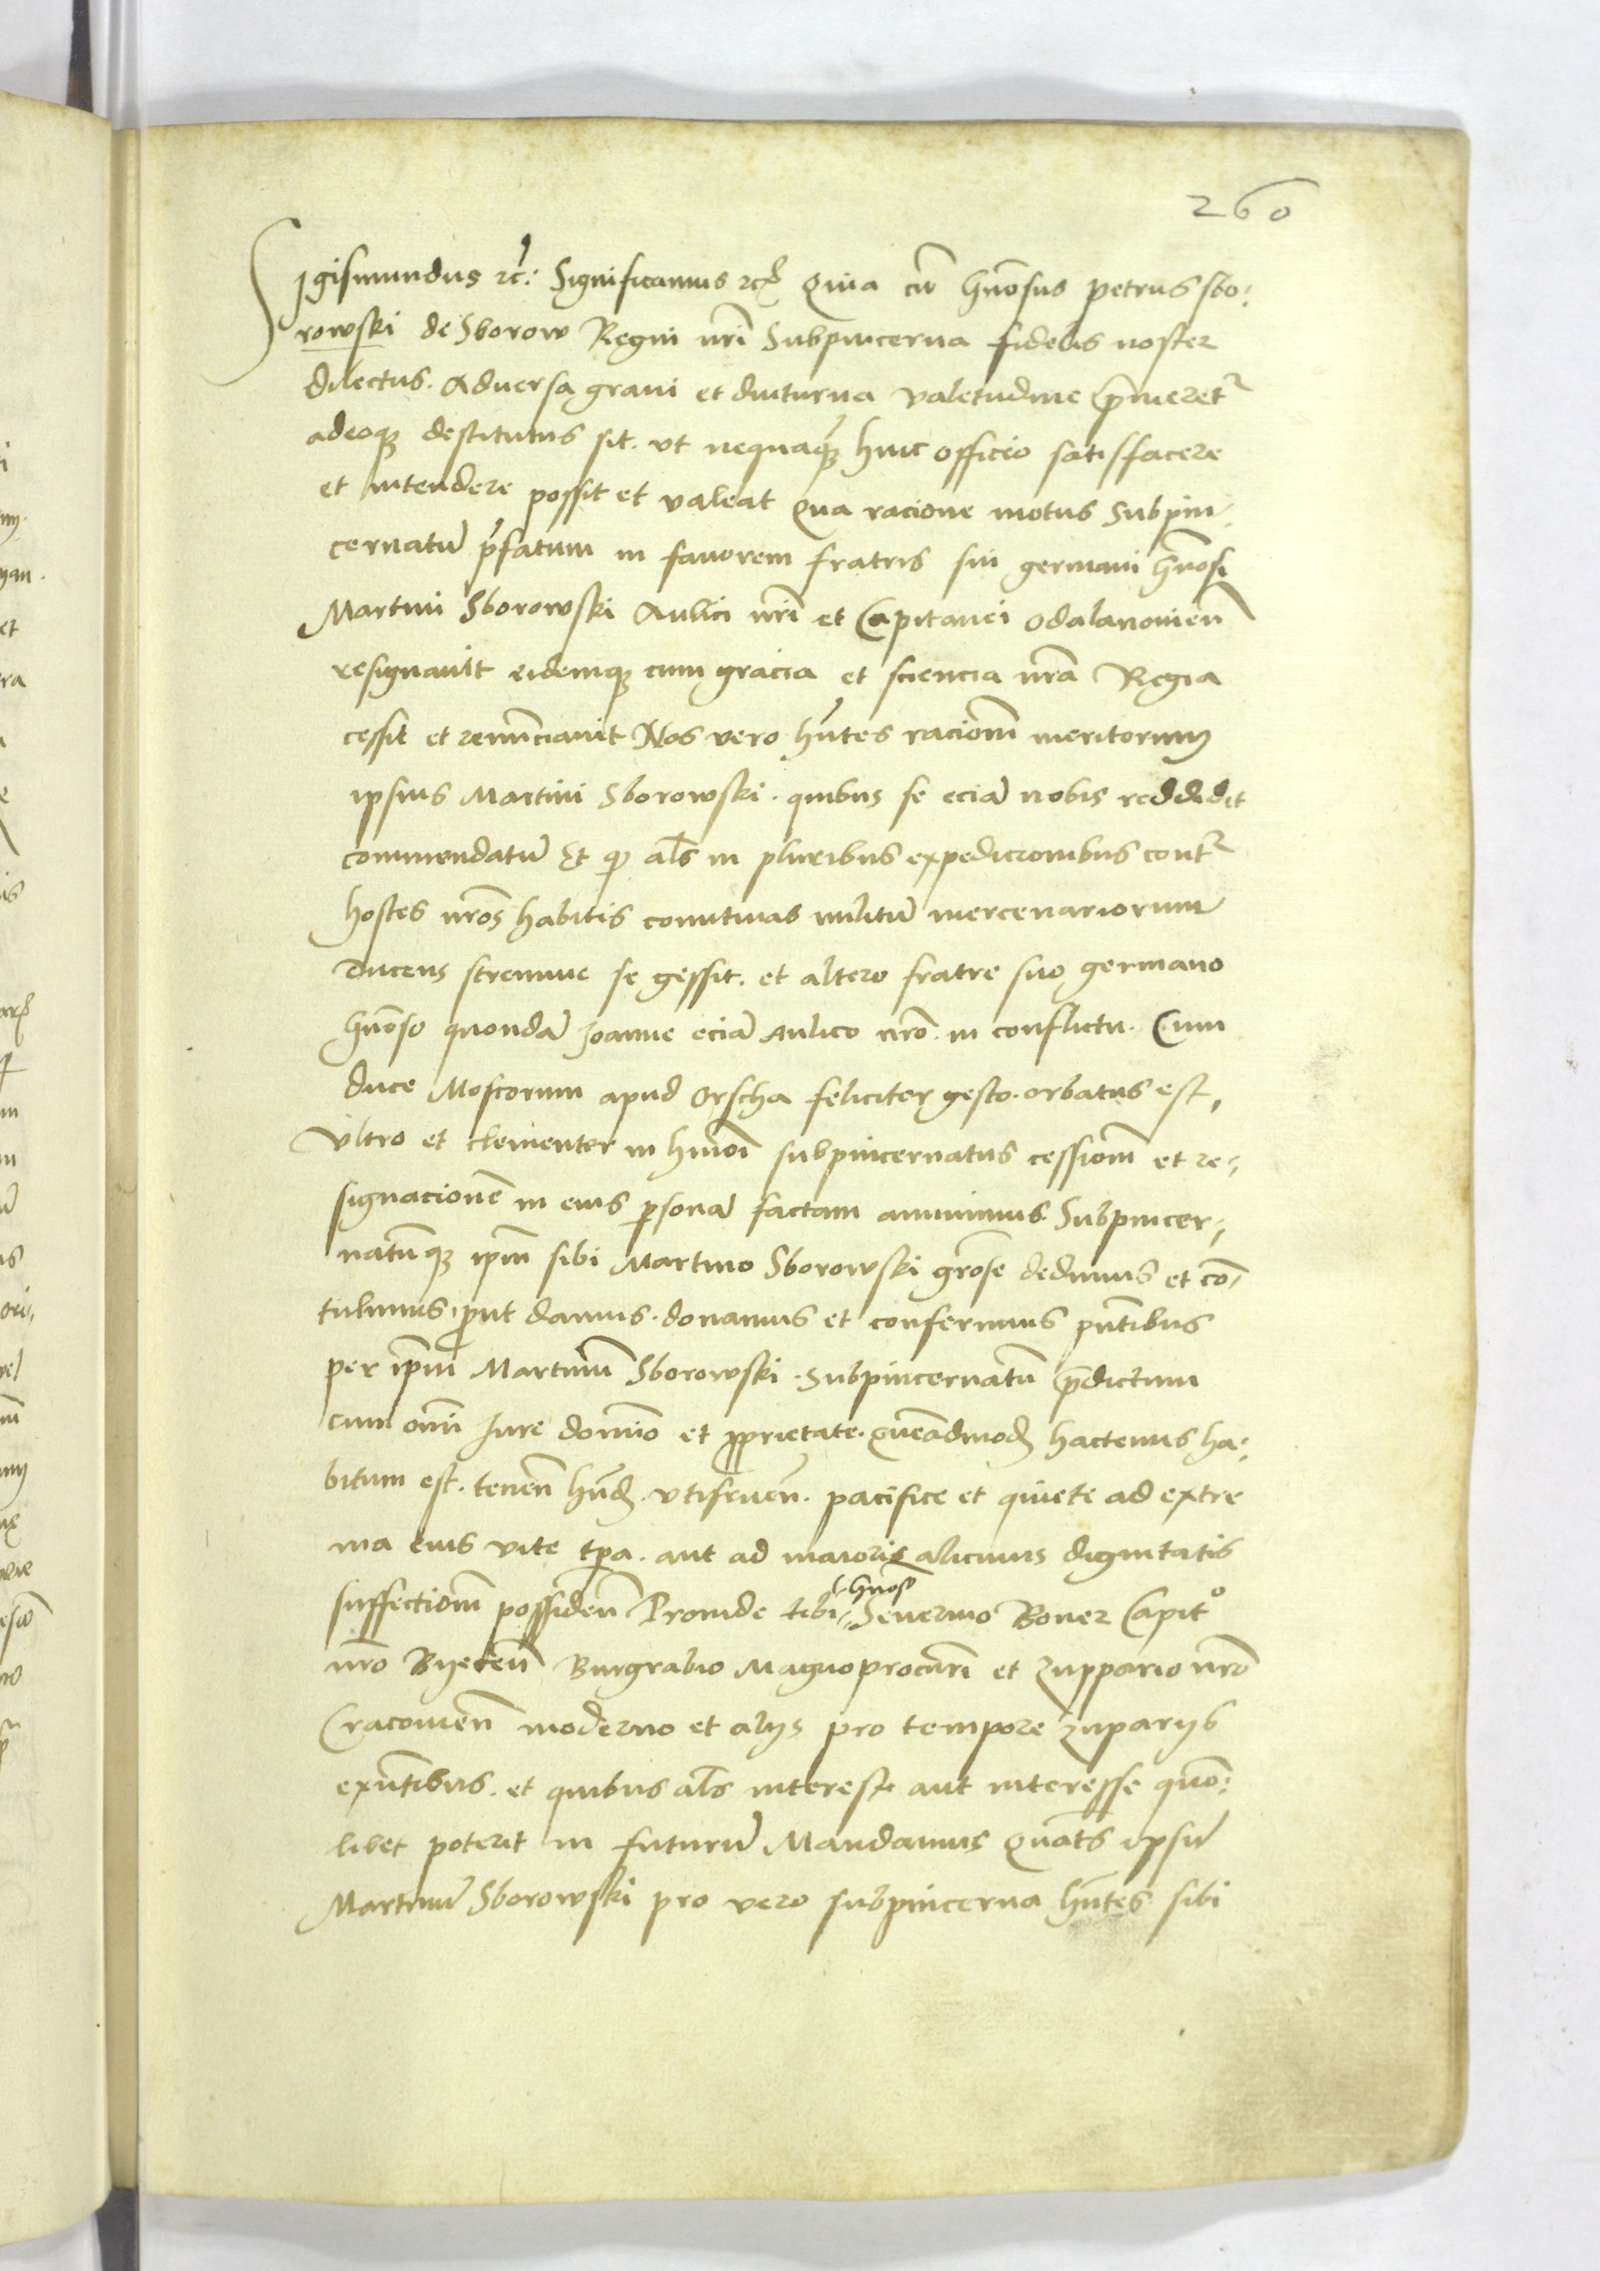 260
Sigismundus rc̃: Significamus rc̃ Quia cũ Gn̄osus petrus sbo:
rowski de Sborow Regni nr̄i Subpincerna fidelis noster
dilectus. Adversa gravi et diuturna valetudine p̄meret᷑
adeoq; destitutus sit. ut nequaq̃ huic officio satisfacere
et intendere possit et valeat Qua racione motus Subpin:
cernatũ p̄fatum in favorem fratris sui germani Gn̄osi
Martini Sborowski Aulici nr̄i et Capitanei odalanovien̄
resignavit eidemq; cum gracia et sciencia nr̄a Regia
cessit et renũciavit Nos vero hn̄tes racionē meritorum
ipsius Martini Sborowski. quibus se eciã nobis reddidit
commendatũ Et q̃ al̄s in pluribus expedicionibus cont᷑
hostes nr̄os habitis comitivas militũ mercenariorum
ducens strennue se gessit. et altero fratre suo germano
Gn̄oso quondã Joanne eciã aulico nr̄o. in conflictu. Cum
duce Moscorum apud Orscha feliciter gesto. orbatus est,
Ultro et clementer in hm̄oi subpincernatus cessionē et re:,
signacionē in eius p̱sonã factam annuimus Subpincer:,
natũq; ip̄m sibi Martino Sborowski gr̄ose dedimus et cō:
tulimus, prut damus. donamus et conferimus pn̄tibus
per ip̄m Martinũ Sborowski. Subpincernatũ p̄dictum
cum om̄i Jure dominio et p̱prietate. quēadmod̃ hactenus ha:
bitum est. tenen̄ hn̄d̃. utifruen̄. pacifice et quiete ad extre
ma eius vite tp̄a. aut ad maioris alicuius dignitatis
suffectionē possiden̄ Proinde tibi:, Gn̄oso Severino Boner Capit°
nr̄o Byeczen̄ Burgrabio Magnoprocur̄i et Zuppario nr̄o
Cracovien̄ moderno et alijs pro tempore zuparijs
exn̄tibus. et quibus al̄s interest aut interesse quō:
libet poterit in futurũ Mandamus Quat̄s ipsũ
Martinũ Sborowski pro vero subpincerna hn̄tes sibi